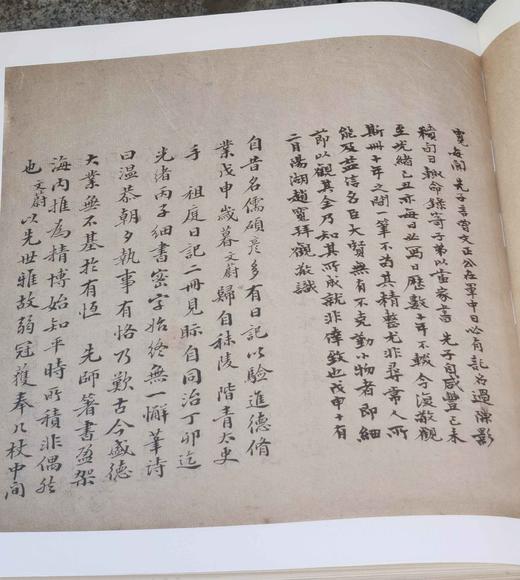 寬每聞先子言曾文正公在軍中日必有記名過隙影
積句日輒命錄寄子弟以當家書先子自咸豐己未
至光緒己丑亦每日必寫日歷數十年不輟今復敬觀
斯冊十年之間一筆不苟其精整尤非尋常人所
能及益信名臣大賢無有不克勤小物者即細
節以觀其全乃知其所成就非偉致也戊申十有
二月陽湖趙寬拜觀敬識
自昔名儒碩彥多有日記以驗進德脩
業戊申歲暮文蔚歸自秣陵階青太史
手祖庭日記二冊見眎自同治丁卯迄
光緒丙子細書密字始終無一懈筆詩
曰溫恭朝夕執事有恪乃歎古今盛德
大業無不基於有恆先師著書盈架
海內推為精博始知平時所積非偶然
也文蔚以先世雅故弱冠獲奉几杖中間